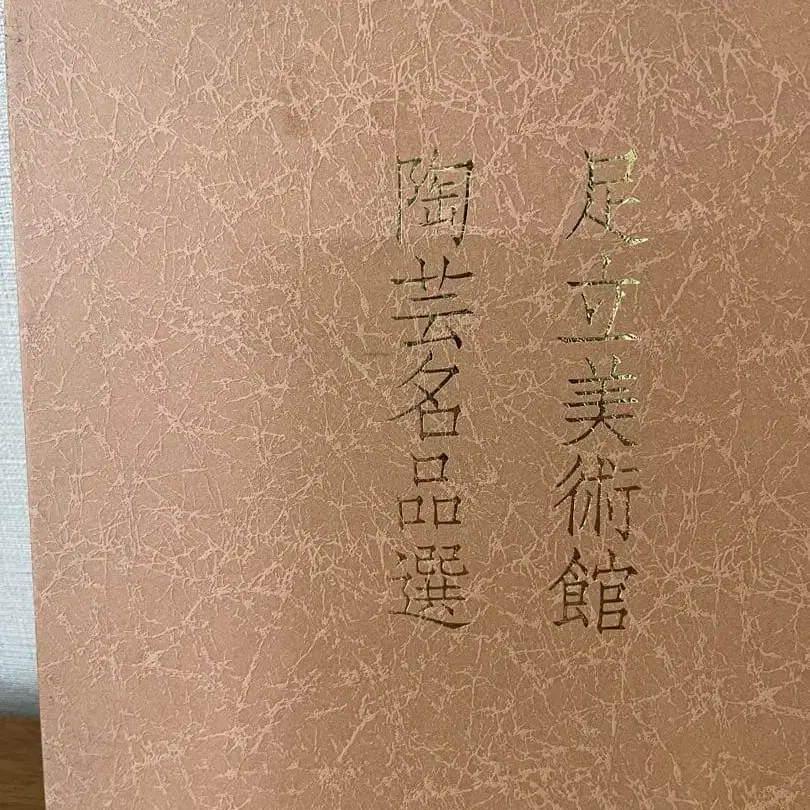 足立美術館
陶芸名品選